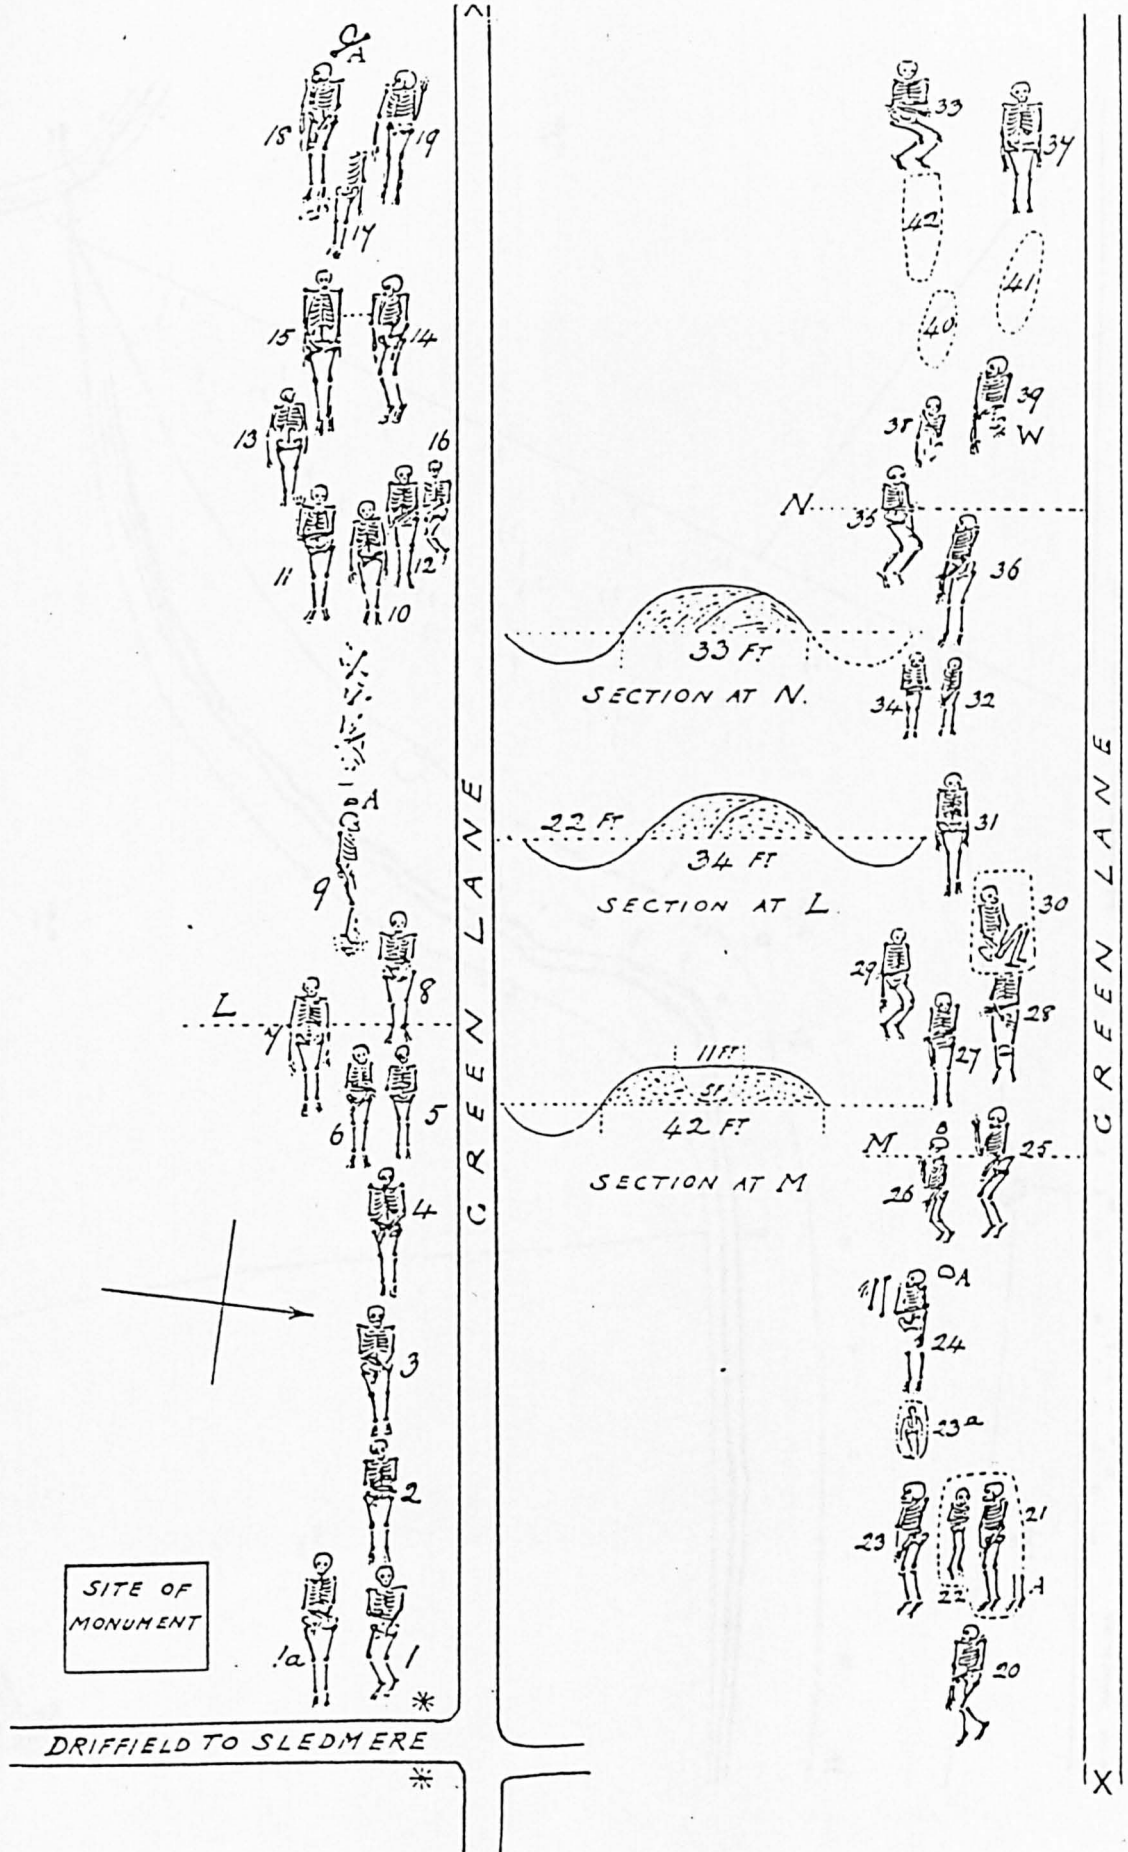 A
18
19
17
15
14
13
16
11
12
10
A
9
8
L
7
6
5
4
3
2
1a
1
SITE OF
MONUMENT
DRIFFIELD TO SLEDMERE
GREEN LANE
33 FT
SECTION AT N.
22 FT
34 FT
SECTION AT L
11 FT
42 FT
SECTION AT M
33
37
42
41
40
39
38
W
N
35
36
34
32
31
30
29
28
27
M
25
26
A
24
23a
21
23
22
A
20
GREEN LANE
X